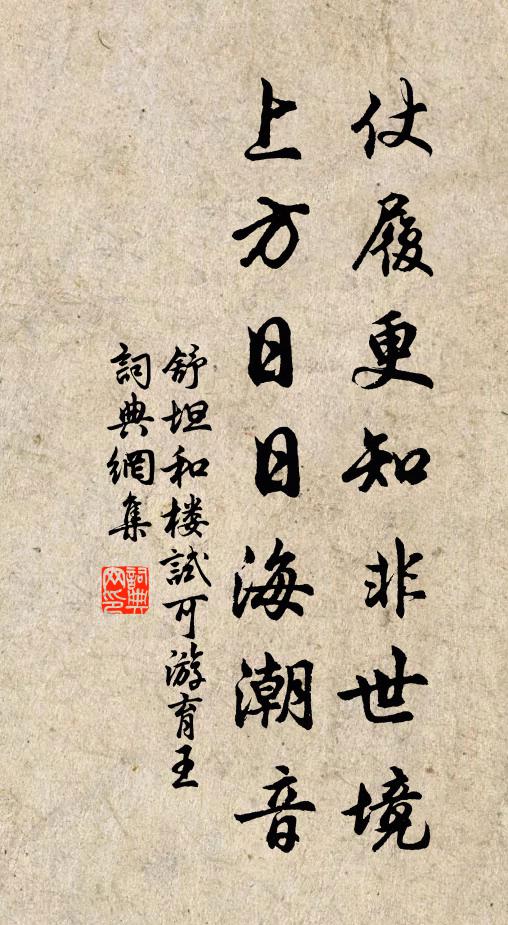 仗履更知非世境
上方日日海潮音
舒坦和楼試可游育王
詞典網集
詞典网印